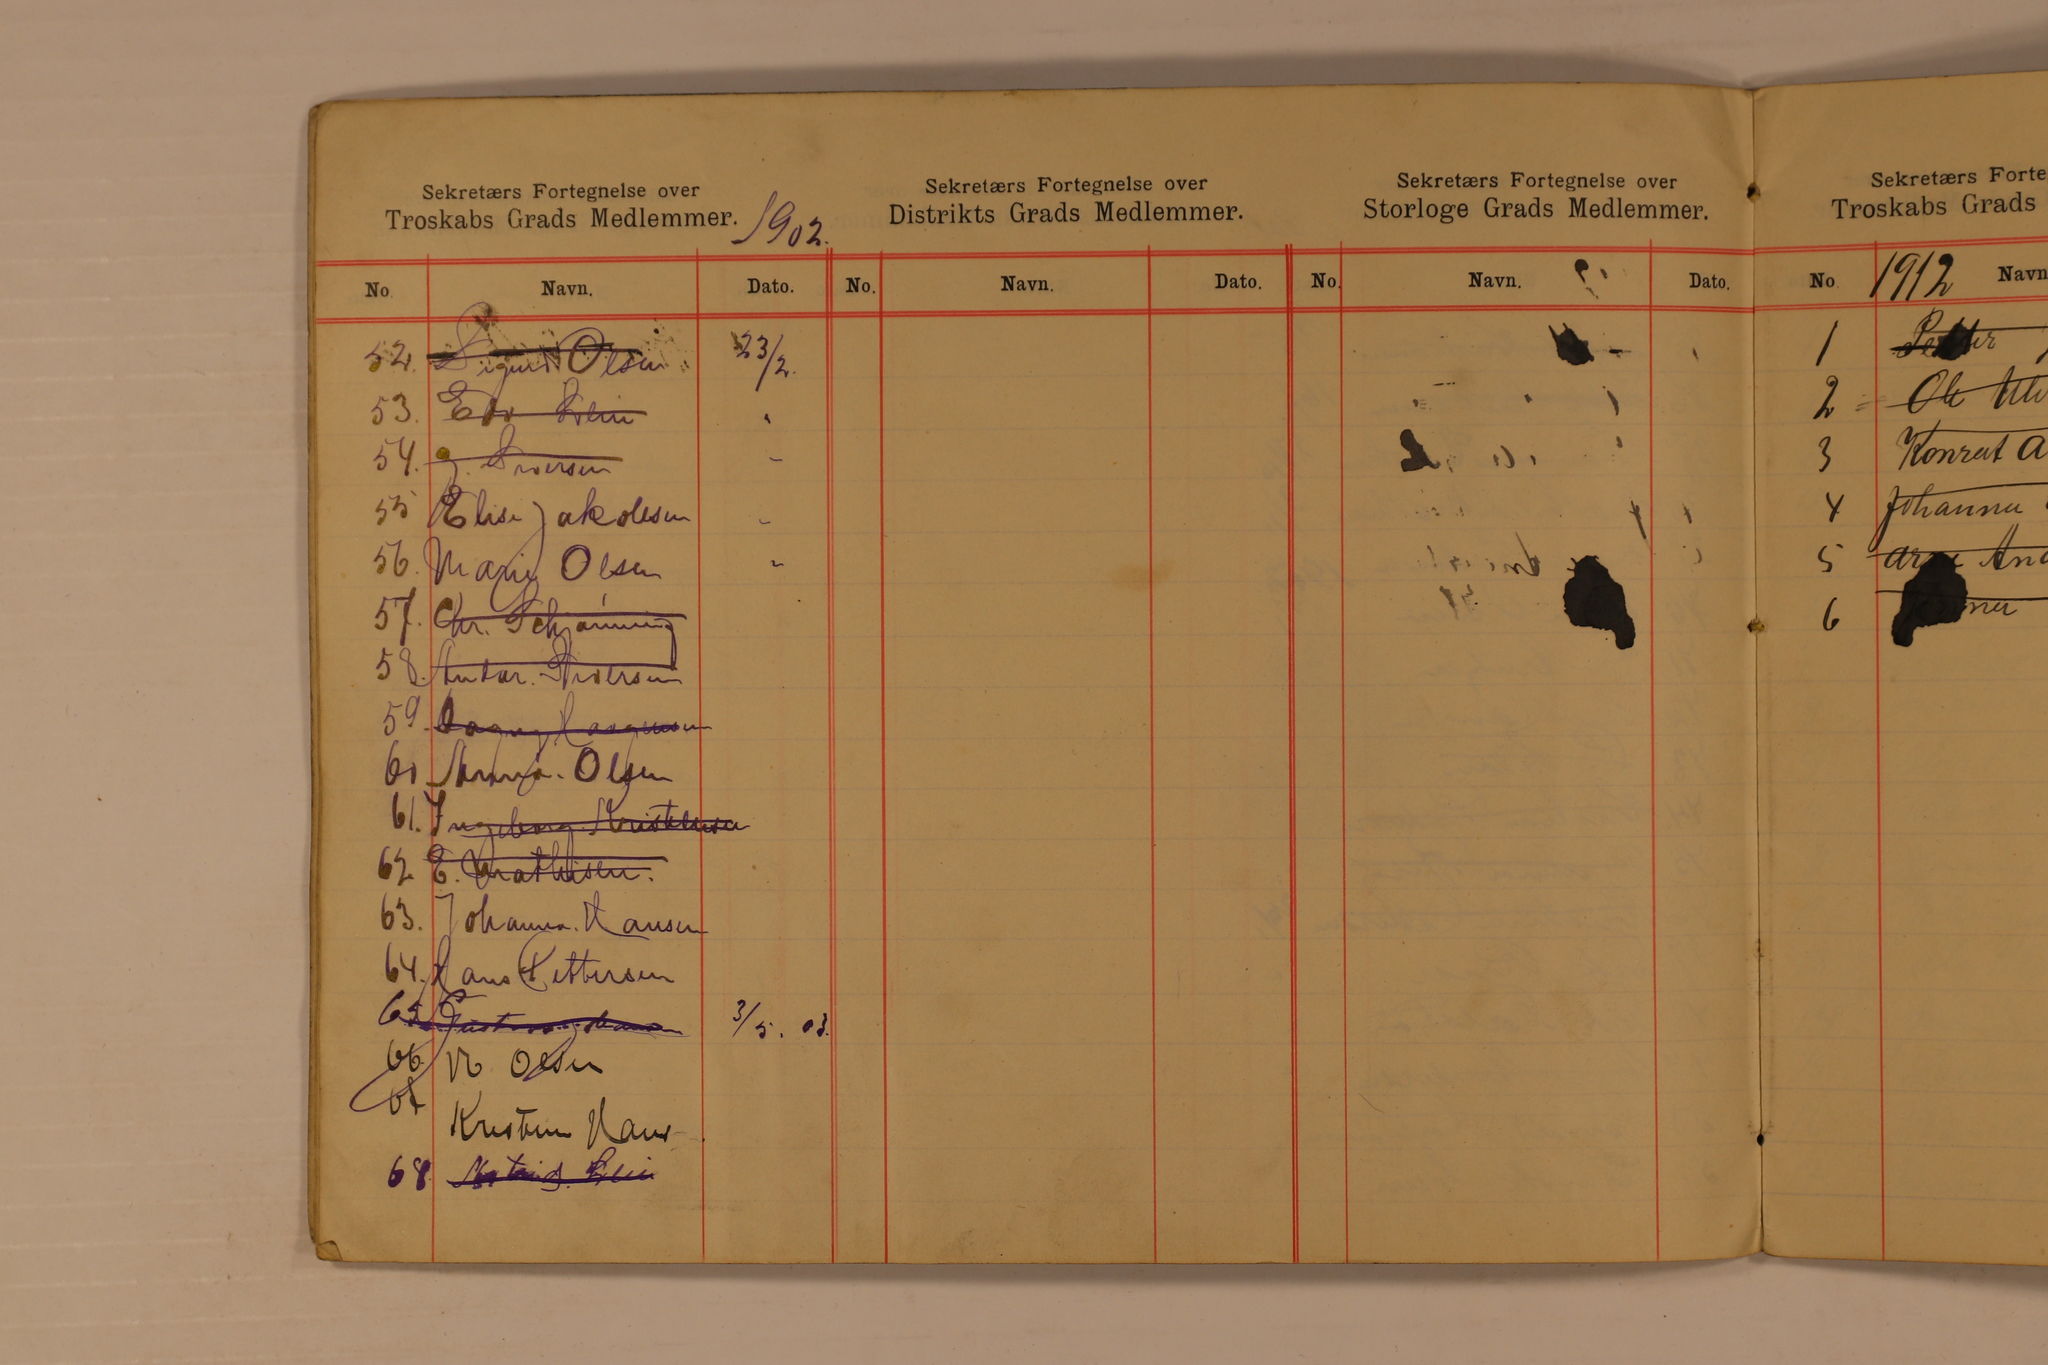 Sekretærs Fortegnelse over
Troskabs Grads Medlemmer. 1902.
No. Navn. Dato.
52. Sigurd Olsen 23/2.
53. Edv
54. J. Iversen "
55 Elise Jakobsen "
56. Marie Olsen "
57. Chr. Schjønning
58. Iversen
59. Dagny
60 Anna. Olsen
61. Ingeborg Kristensen
62 E. Mathisen.
63. Johanna. Hansen
64. Hans Pettersen
65 3/5. 03.
66 Olsen
67 Kristian Hans
68.
Sekretærs Fortegnelse over
Distrikts Grads Medlemmer.
No. Navn. Dato.
Sekretærs Fortegnelse over
Storloge Grads Medlemmer.
No. Navn. Dato.
Sekretærs Forte
Troskabs Grads
No. 1912 Navn
1 Petter
2 Ole
3 Konrat A
4 Johanna
5 Arne And
6